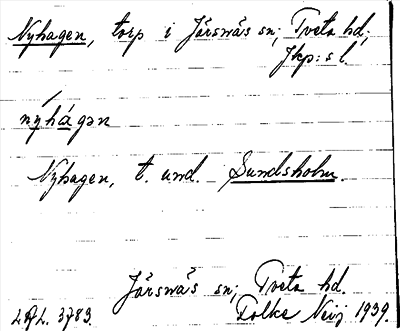 Nyhagen, torp i Järsnäs sn; Tveta hd;
Jkp:s l.
nýhágən
Nyhagen, t. und. Sundsholm.
Järsnäs sn; Tveta hd.
ULMA. 3783. Folke Neij. 1939.